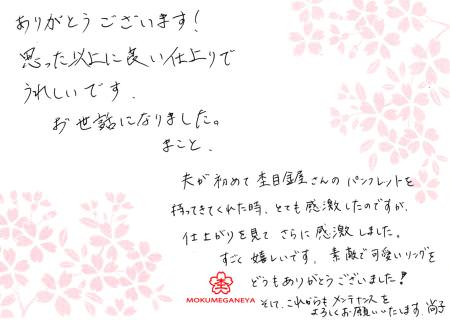 ありがとうございます!
思った以上に良い仕上りで
うれしいです.
お世話になりました。
まこと.
夫が初めて杢目金屋さんのパンフレットを
持ってきてくれた時、とても感激したのですが、
仕上がりを見てさらに感激しました。
すごく嬉しいです。素敵で可愛いリングを
どうもありがとうございました!
そして、これからもメンテナンスを
よろしくお願いいたします。尚子
MOKUMEGANEYA